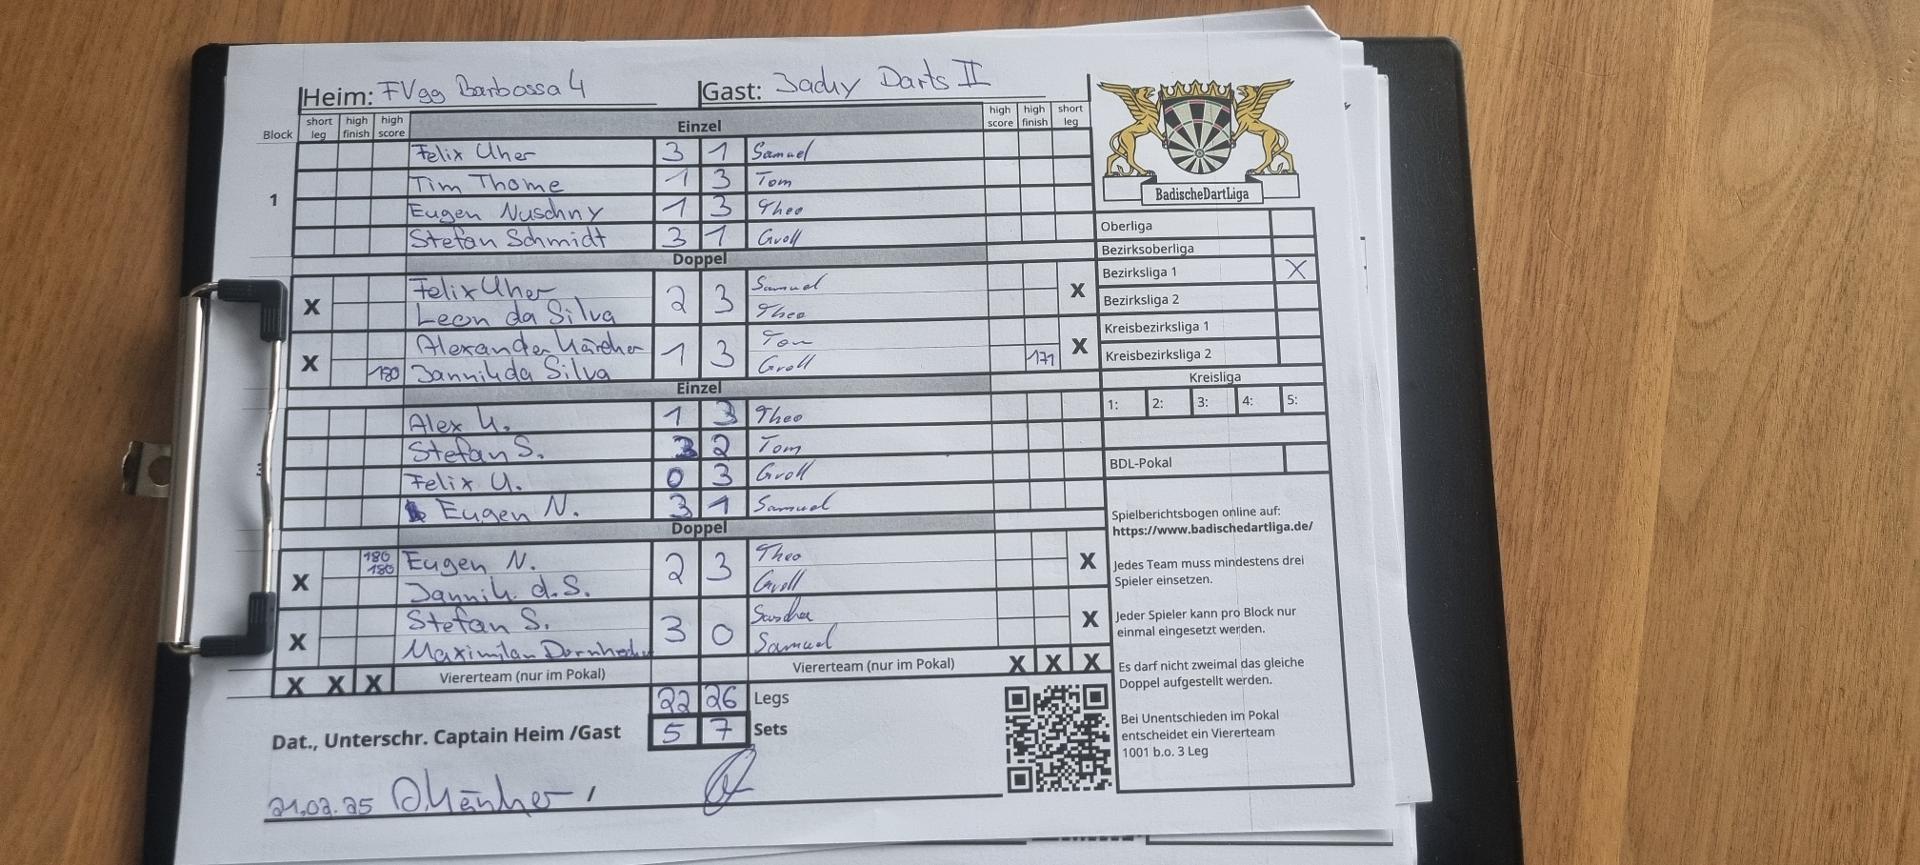 Heim: FVgg Barbossa 4 Gast: Jacky Darts II
Block short leg high finish high score Einzel high score high finish short leg
1
Felix Uher 3 1 Samuel
Tim Thome 1 3 Tom
Eugen Nuschny 1 3 Theo
Stefan Schmidt 3 1 Groll
Doppel
X Felix Uher 2 3 Samuel X
Leon da Silva Theo
X Alexander Kärcher 1 3 Tom X
180 Jannik da Silva Groll 171
Einzel
Alex K. 1 3 Theo
Stefan S. 3 2 Tom
Felix U. 0 3 Groll
Eugen N. 3 1 Samuel
Doppel
X 180 180 Eugen N. 2 3 Theo X
Jannik d. S. Groll
X Stefan S. 3 0 Sascha X
Maximilian Samuel
X X X Viererteam (nur im Pokal) Viererteam (nur im Pokal) X X X
22 26 Legs
Dat., Unterschr. Captain Heim /Gast 5 7 Sets
21.02.25 /
BadischeDartLiga
Oberliga
Bezirksoberliga
Bezirksliga 1 X
Bezirksliga 2
Kreisbezirksliga 1
Kreisbezirksliga 2
Kreisliga
1: 2: 3: 4: 5:
BDL-Pokal
Spielberichtsbogen online auf:
https://www.badischedartliga.de/
Jedes Team muss mindestens drei
Spieler einsetzen.
Jeder Spieler kann pro Block nur
einmal eingesetzt werden.
Es darf nicht zweimal das gleiche
Doppel aufgestellt werden.
Bei Unentschieden im Pokal
entscheidet ein Viererteam
1001 b.o. 3 Leg